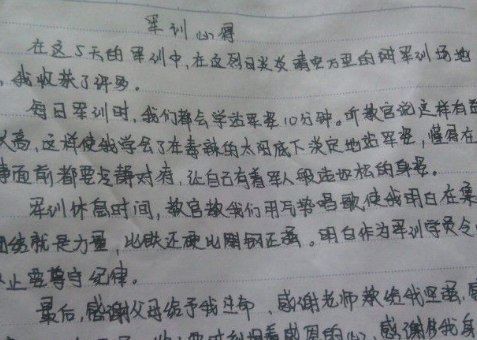 军训心得
在这5天的军训中,在这烈日炎炎晴空万里的 军训场地
,我收获了许多。
每日军训时,我们都会学站军姿10分钟。听教官说这样有
高,这样使我学会了在毒辣的太阳底下淡定地站军姿,懂得在
事面前都要冷静对待,让自己有着军人般 的身姿。
军训休息时间,教官教我们用气势唱歌使我明白在集
团结就是力量,比铁还硬比刚钢还强。明白作为军训学员令
止要遵守纪律。
最后,感谢父母给予我生命,感谢老师教给我坚强,
感恩的心,感谢